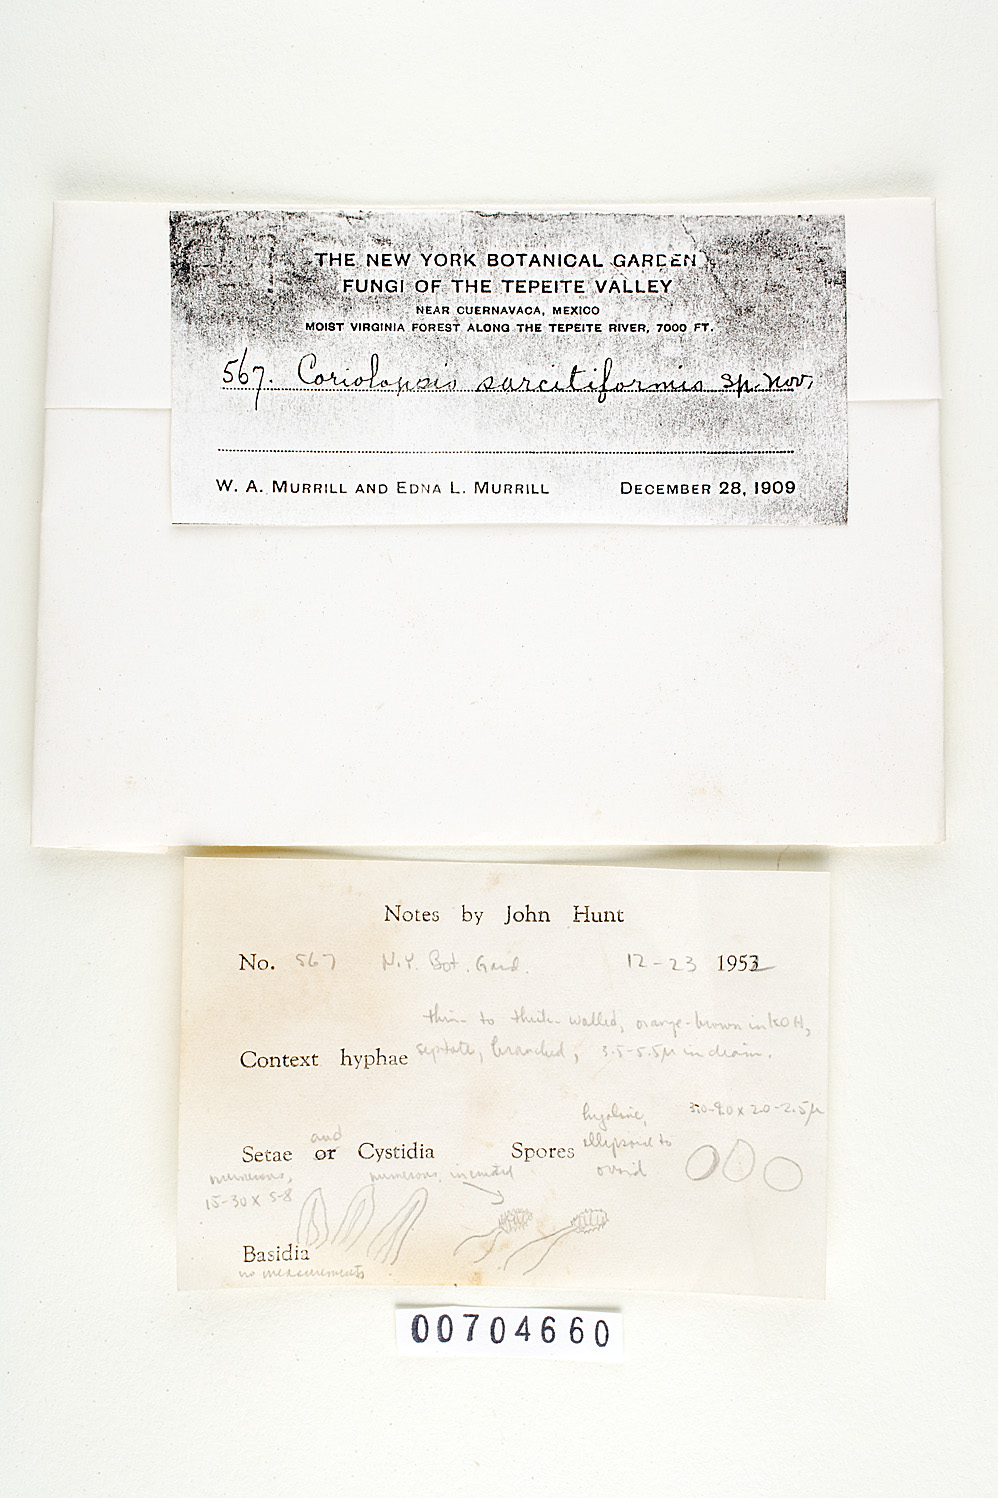 THE NEW YORK BOTANICAL GARDEN
FUNGI OF THE TEPEITE VALLEY
NEAR CUERNAVACA, MEXICO
MOIST VIRGINIA FOREST ALONG THE TEPEITE RIVER, 7000 FT.
567. Coriolopsis sarcitiformis sp. nov.
W. A. MURRILL AND EDNA L. MURRILL DECEMBER 28, 1909
Notes by John Hunt
No. 567 N.Y. Bot. Gard. 12-23 1952
thin- to thick-walled, orange-brown in KOH,
Context hyphae septate, branched, 3.5-5.5µ in diam.
hyaline, 2.0-2.5µ
Setae and or Cystidia Spores ellipsoid to
numerous, numerous, incrusted ovoid
15-30 x 5-8
Basidia
no measurements
00704660